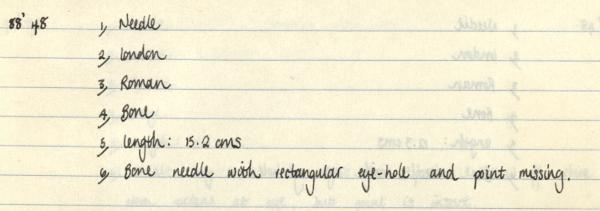 88' 48 1, Needle
2, London
3, Roman
4, Bone
5, length: 15.2 cms
6, Bone needle with rectangular eye-hole and point missing.